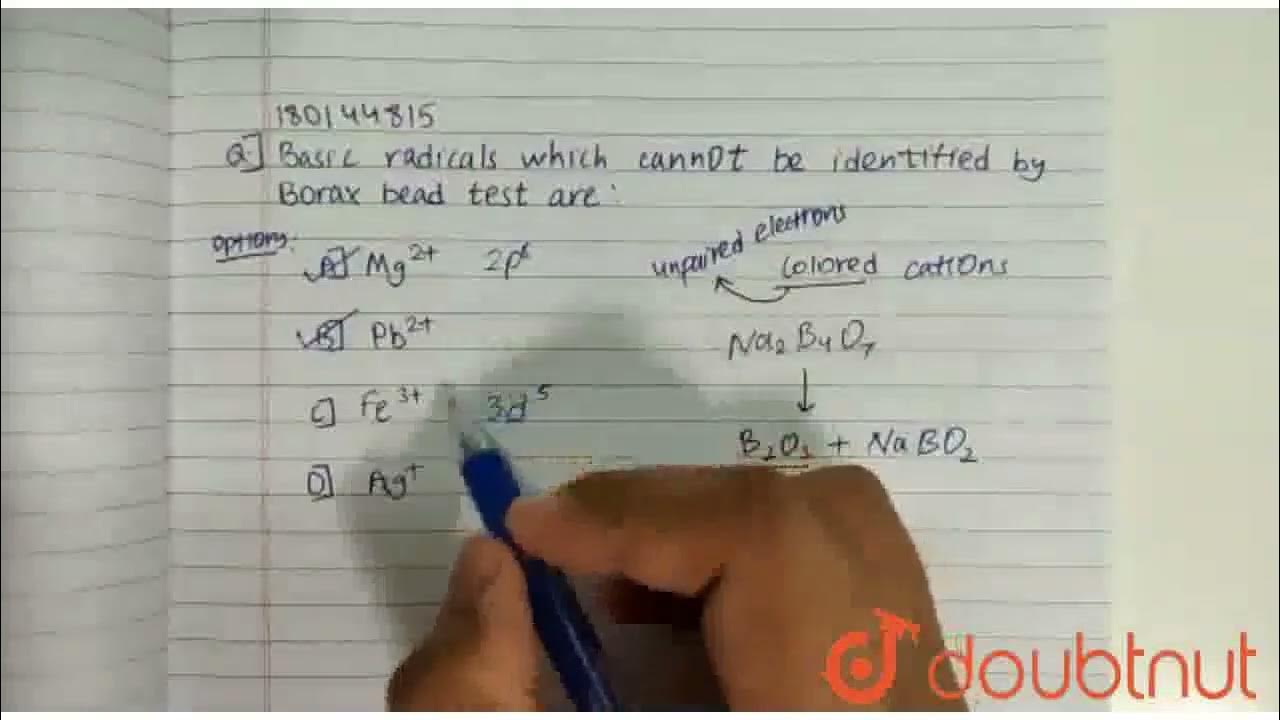 180144815
Q] Basic radicals which cannot be identified by
Borax bead test are:
options:
A] Mg²⁺ 2p⁶
unpaired electrons
colored cations
B] Pb²⁺
Na₂B₄O₇
↓
C] Fe³⁺ 3d⁵
B₂O₃ + NaBO₂
D] Ag⁺
doubtnut